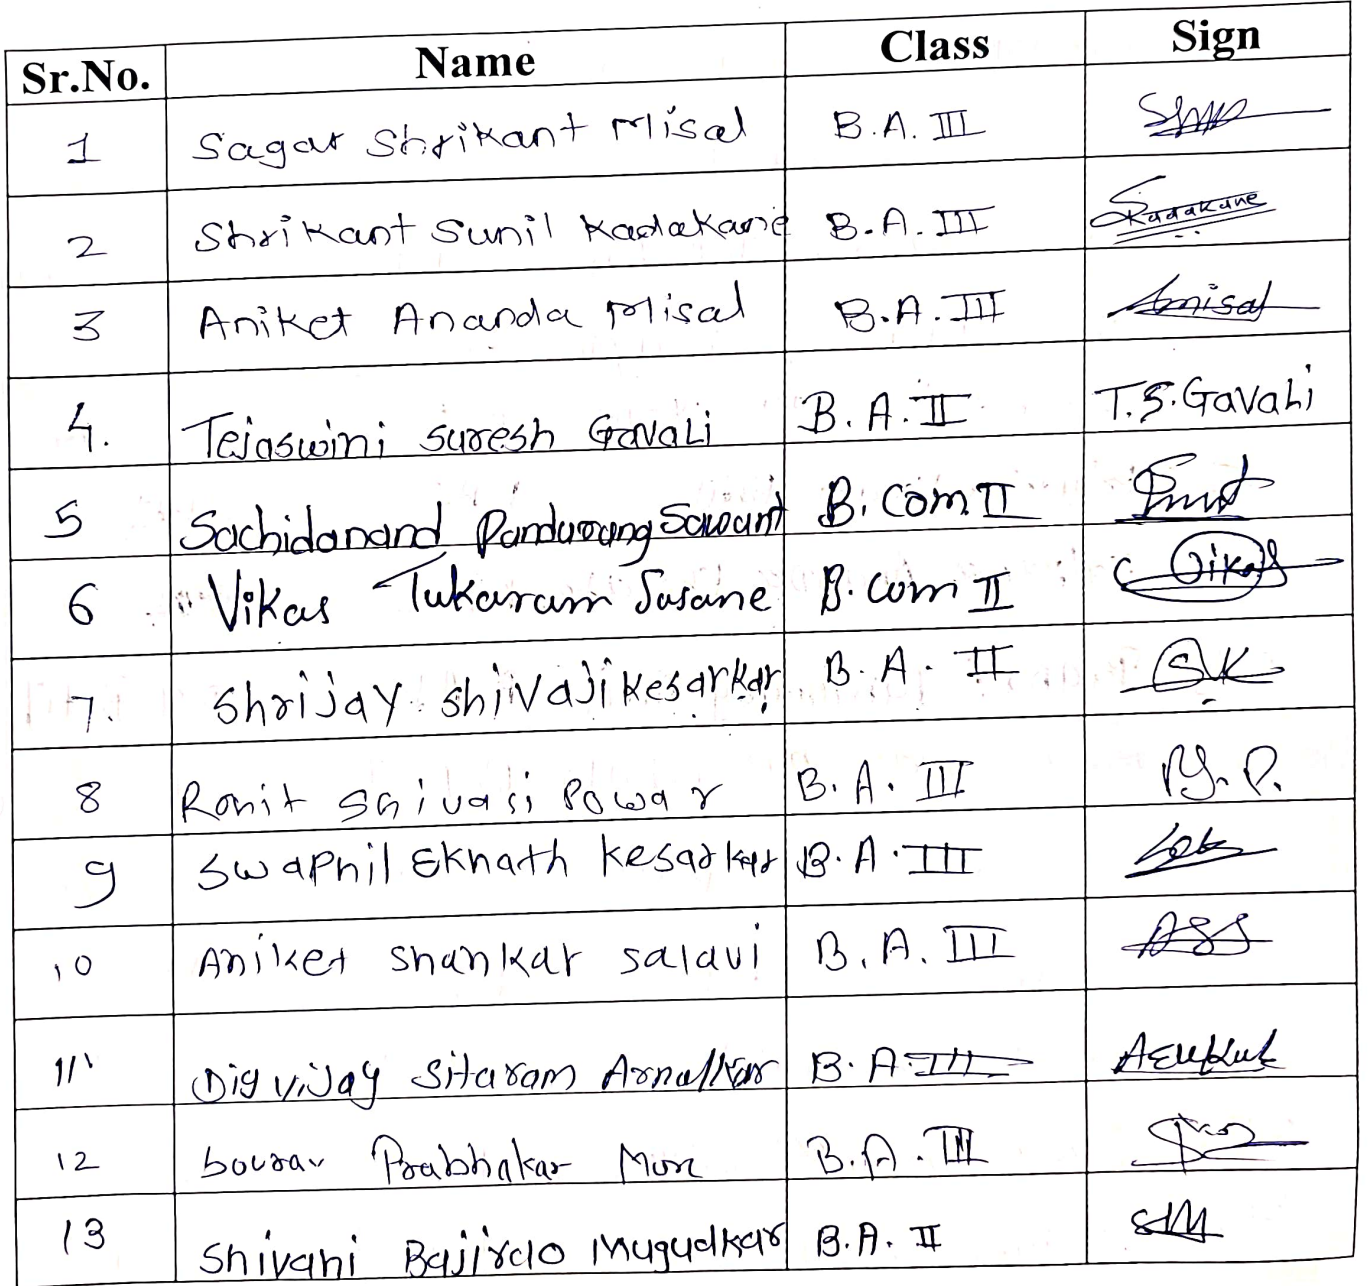 Sr.No. Name Class Sign
1 Sagar Shrikant Misal B.A. III
2 Shrikant Sunil Kadakane B.A. III Kadakane
3 Aniket Ananda Misal B.A. III Amisal
4. Tejaswini Suresh Gavali B.A. II T.S. Gavali
5 Sachidanand Pandurang Sawant B. Com II
6 Vikas Tukaram Sasane B. Com II Vikas
7. Shrijay Shivaji Kesarkar B.A. II SK
8 Ronit Shivaji Powar B.A. III R.P.
9 Swapnil Eknath Kesarkar B.A. III
10 Aniket Shankar Salavi B.A. III ASS
11 Digvijay Sitaram Arnalkar B.A. III
12 Sourav Prabhakar More B.A. III
13 Shivani Bajirao Mugudkar B.A. II SBM